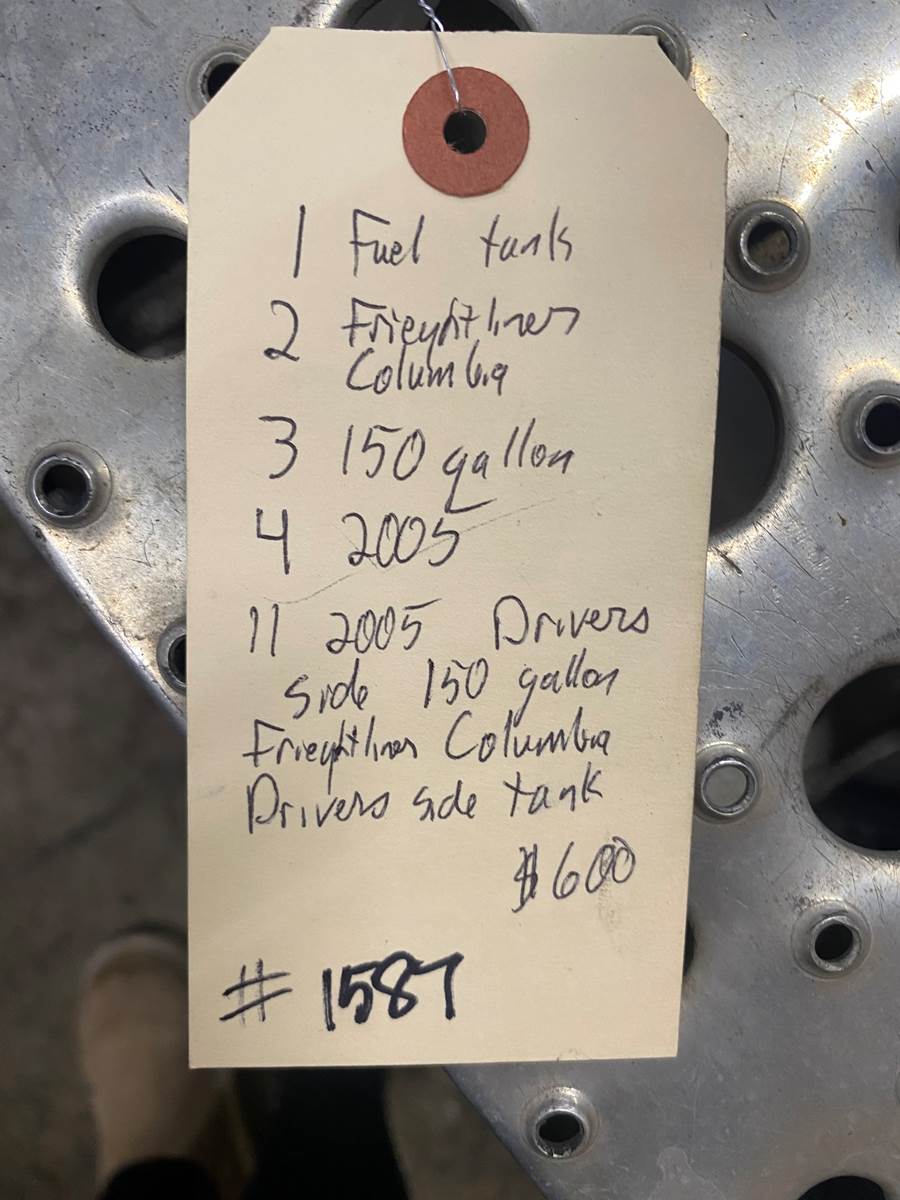 1 Fuel tank
2 Frieghtliner
Columbia
3 150 gallon
4 2005
11 2005 Drivers
side 150 gallon
Frieghtliner Columbia
Drivers side tank
$600
# 1587